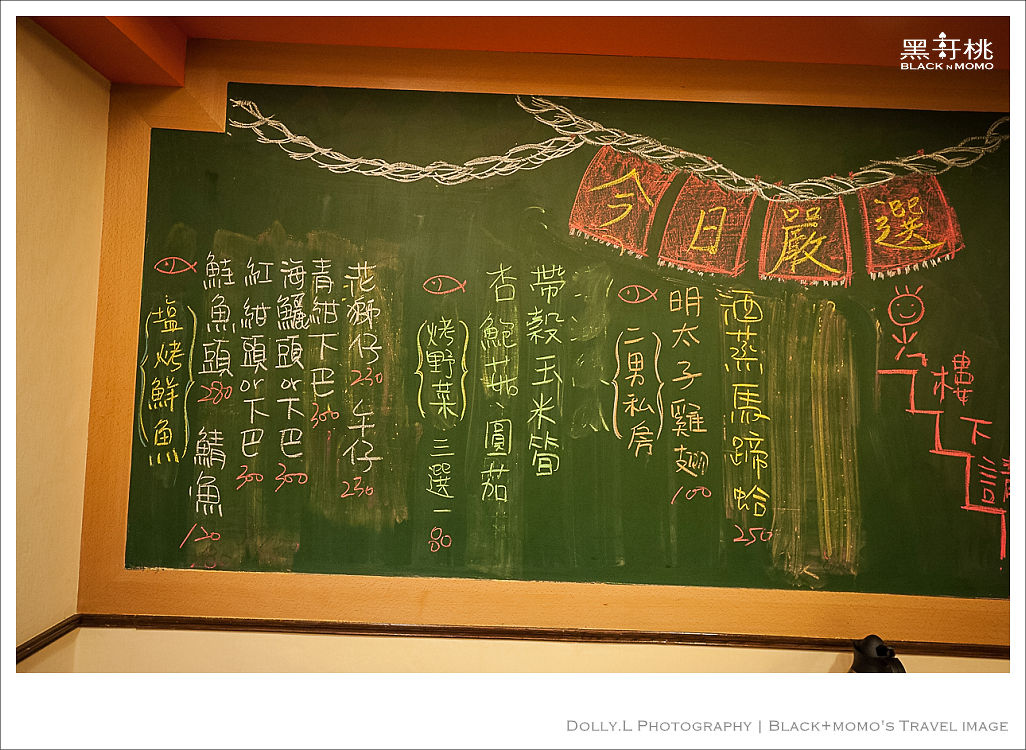 黑桃
BLACK N MOMO
今日嚴選
樓下請
酒蒸馬蹄蛤 250
二男私房
明太子雞翅 100
烤野菜 三選一 80
帶穀玉米筍
杏鮑菇、圓茄
塩烤鮮魚
花獅仔 230 午仔 230
青紺下巴 300
海鱺頭or下巴 300
紅紺頭or下巴 300
鮭魚頭 280 鯖魚 120
Dolly.L Photography | Black+momo's Travel image